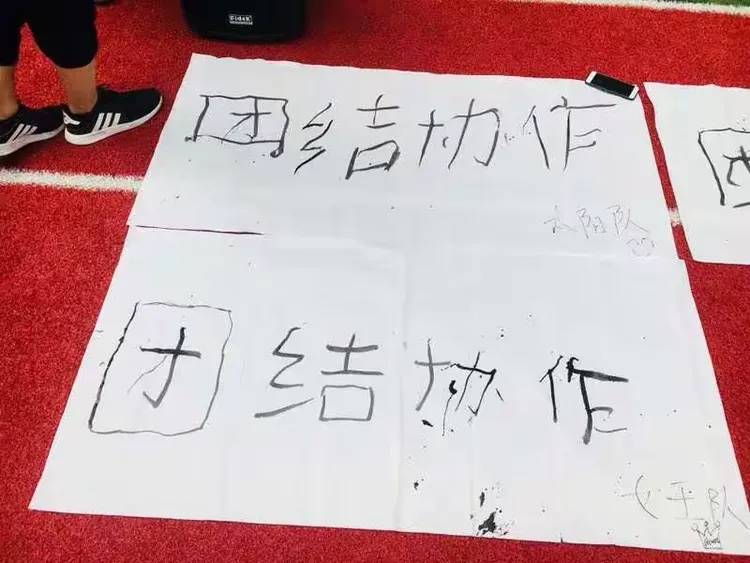 团结协作
太阳队
团
团结协作
女王队